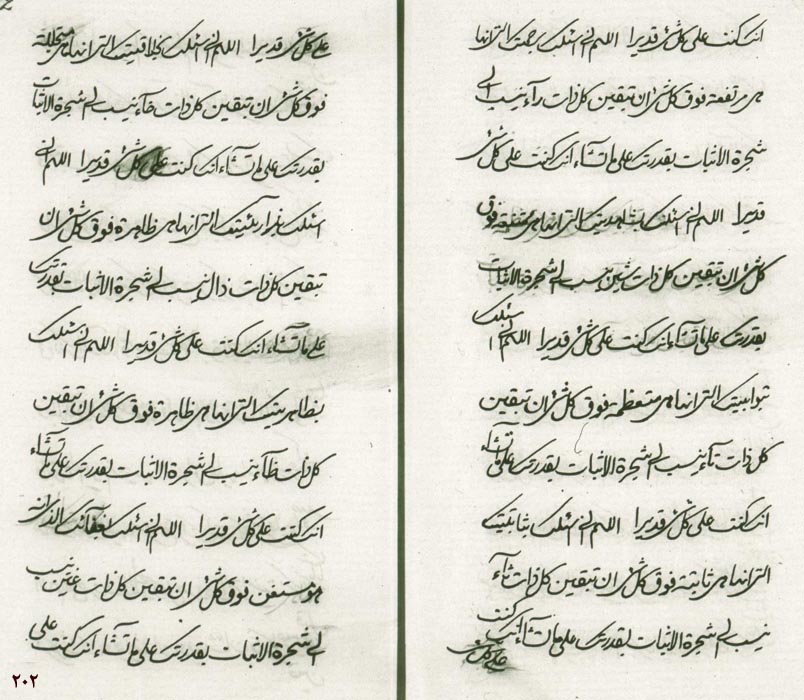 انك كنت على كل شئ قديرا اللهم اني اسئلك برحمتك التى انها
هى مرتفعة فوق كل شئ ان تبقين كل ذات رآء ينسب الى
شجرة الاثبات بقدرتك على ما تشآء انك كنت على كل شئ
قديرا اللهم اني اسئلك التى انها هى فوق
كل شئ ان تبقين كل ذات شين ينسب الى شجرة الاثبات
بقدرتك على ما تشآء انك كنت على كل شئ قديرا اللهم اني اسئلك
بتوابيتك التى انها هى متعظمة فوق كل شئ ان تبقين
كل ذات تآء ينسب الى شجرة الاثبات بقدرتك على ما تشآء
انك كنت على كل شئ قديرا اللهم اني اسئلك بثابتيتك
التى انها هى ثابتة فوق كل شئ ان تبقين كل ذات ثآء
ينسب الى شجرة الاثبات بقدرتك على ما تشآء انك كنت
على كل شئ
على كل شئ قديرا اللهم اني اسئلك بخلاقيتك التى انها هى
فوق كل شئ ان تبقين كل ذات خآء ينسب الى شجرة الاثبات
بقدرتك على ما تشآء انك كنت على كل شئ قديرا اللهم اني
اسئلك التى انها هى ظاهرة فوق كل شئ ان
تبقين كل ذات ذال ينسب الى شجرة الاثبات بقدرتك
على ما تشآء انك كنت على كل شئ قديرا اللهم اني اسئلك
بظاهريتك التى انها هى ظاهرة فوق كل شئ ان تبقين
كل ذات ظآء ينسب الى شجرة الاثبات بقدرتك على ما تشآء
انك كنت على كل شئ قديرا اللهم اني اسئلك بغنائك الذى انه
هو مستغن فوق كل شئ ان تبقين كل ذات غين ينسب
الى شجرة الاثبات بقدرتك على ما تشآء انك كنت على
٢٠٢